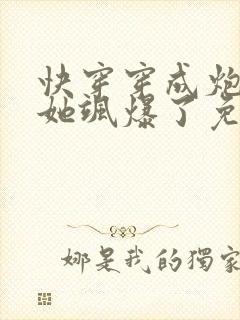 快穿穿成炮
她飒爆了免
娜是我的獨家